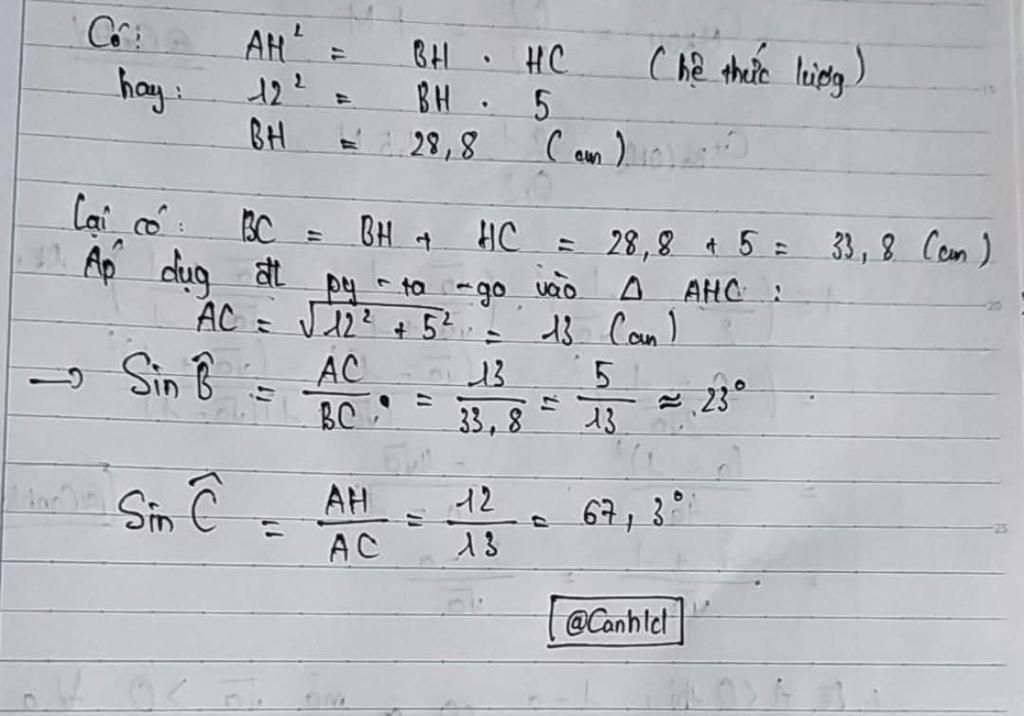 Có: AH² = BH . HC (hệ thức lượng)
hay: 12² = BH . 5
BH = 28,8 (cm)
Lại có: BC = BH + HC = 28,8 + 5 = 33,8 (cm)
Áp dụg đl py-ta-go vào Δ AHC:
AC = √12² + 5² = 13 (cm)
→ Sin B̂ = AC/BC = 13/33,8 = 5/13 ≈ 23°
Sin Ĉ = AH/AC = 12/13 = 67,3°
@Canh1cl